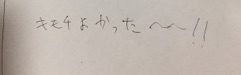 キモチよかった〜〜!!